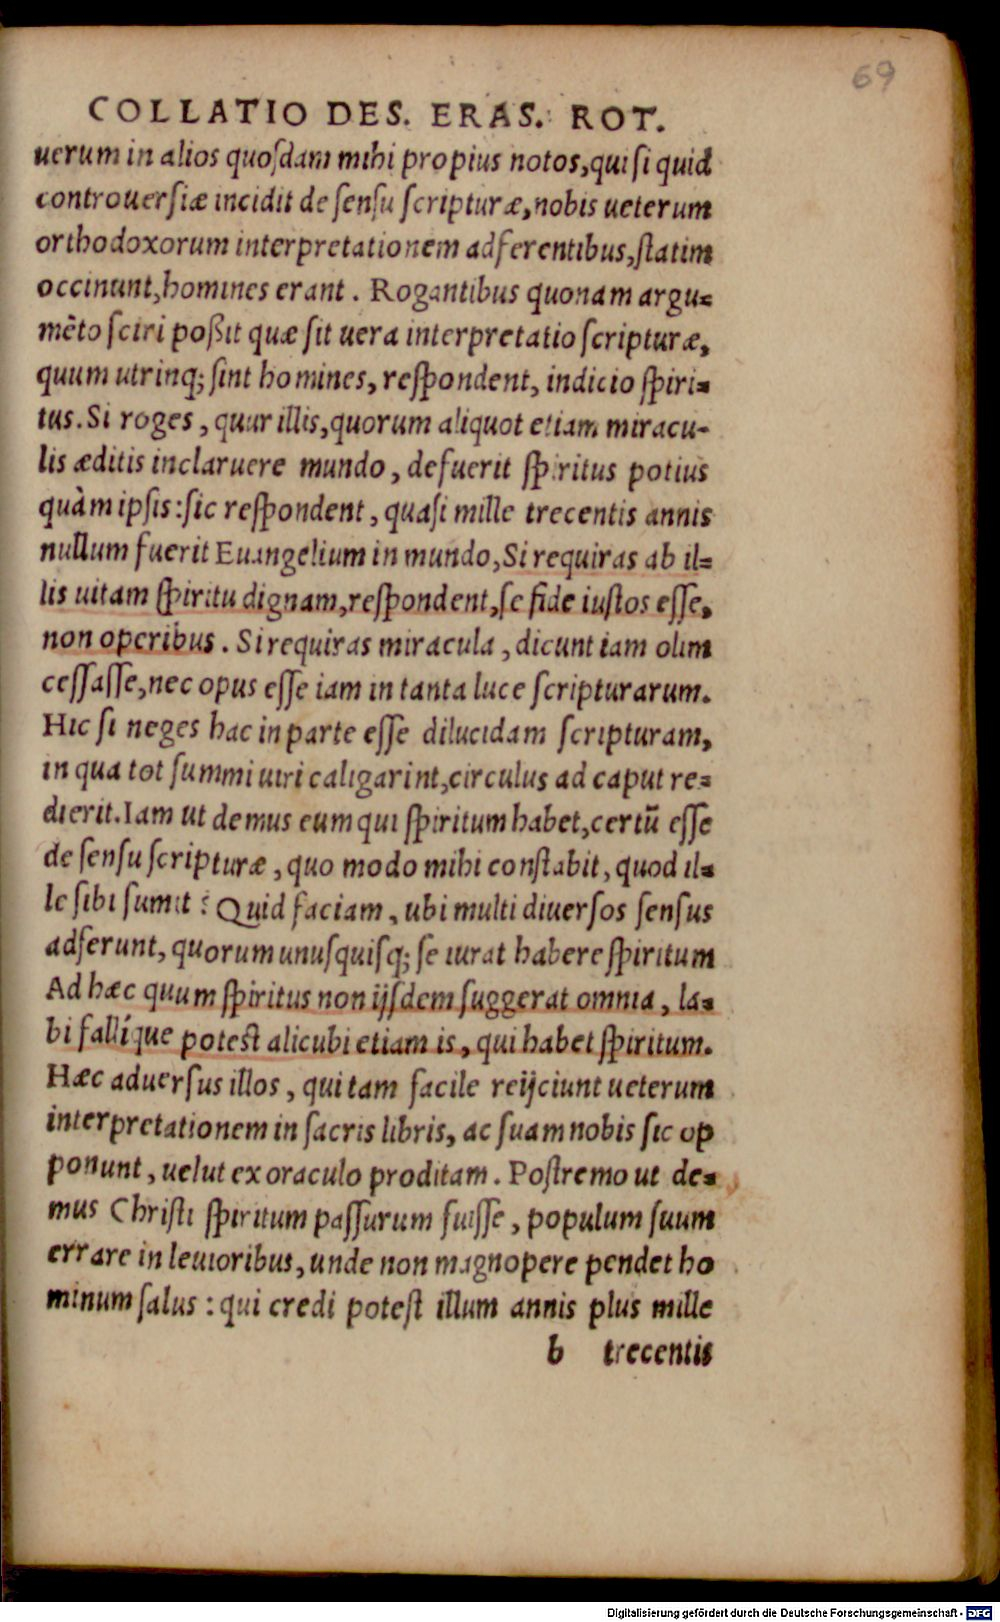 69
COLLATIO DES. ERAS. ROT.
uerum in alios quoſdam mihi propius notos, qui ſi quid
controuerſiæ incidit de ſenſu ſcripturæ, nobis ueterum
orthodoxorum interpretationem adferentibus, ſtatim
occinunt, homines erant. Rogantibus quonam argu⸗
mẽto ſciri poßit quæ ſit uera interpretatio ſcripturæ,
quum utrinq; ſint homines, reſpondent, indicio ſpiri⸗
tus. Si roges, quur illis, quorum aliquot etiam miracu-
lis æditis inclaruere mundo, defuerit ſpiritus potius
quàm ipſis: ſic reſpondent, quaſi mille trecentis annis
nullum fuerit Euangelium in mundo, Si requiras ab il⸗
lis uitam ſpiritu dignam, reſpondent, ſe fide iuſtos eſſe,
non operibus. Si requiras miracula, dicunt iam olim
ceſſaſſe, nec opus eſſe iam in tanta luce ſcripturarum.
Hic ſi neges hac in parte eſſe dilucidam ſcripturam,
in qua tot ſummi uiri caligarint, circulus ad caput re⸗
dierit. Iam ut demus eum qui ſpiritum habet, certũ eſſe
de ſenſu ſcripturæ, quo modo mihi conſtabit, quod il⸗
le ſibi ſumit? Quid faciam, ubi multi diuerſos ſenſus
adferunt, quorum unuſquiſq; ſe iurat habere ſpiritum
Ad hæc quum ſpiritus non ijſdem ſuggerat omnia, la⸗
bi fallíque poteſt alicubi etiam is, qui habet ſpiritum.
Hæc aduerſus illos, qui tam facile reijciunt ueterum
interpretationem in ſacris libris, ac ſuam nobis ſic op
ponunt, uelut ex oraculo proditam. Poſtremo ut de⸗
mus Chriſti ſpiritum paſſurum fuiſſe, populum ſuum
errare in leuioribus, unde non magnopere pendet ho
minum ſalus: qui credi poteſt illum annis plus mille
b trecentis
Digitalisierung gefördert durch die Deutsche Forschungsgemeinschaft - DFG